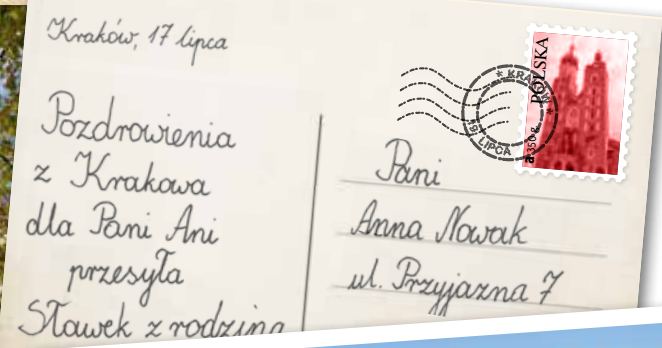 Kraków, 17 lipca
Pozdrowienia
z Krakowa
dla Pani Ani
przesyła
Sławek z rodziną
POLSKA
* KRAKÓW *
19 LIPCA
a 350 g
Pani
Anna Nowak
ul. Przyjazna 7